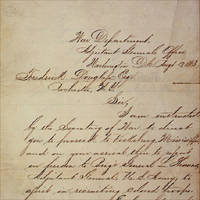 War Department,
Adjutant General's Office,
Washington D.C. Aug. 13, 1863.
Frederick Douglass Esq
Rochester, N.Y.
Sir,
I am instructed
by the Secretary of War to direct
you to proceed to Vicksburg, Mississippi
and on your arrival there to report
in person to Brig'r General L. Thomas,
Adjutant General, U.S. Army, to
assist in recruiting colored troops.